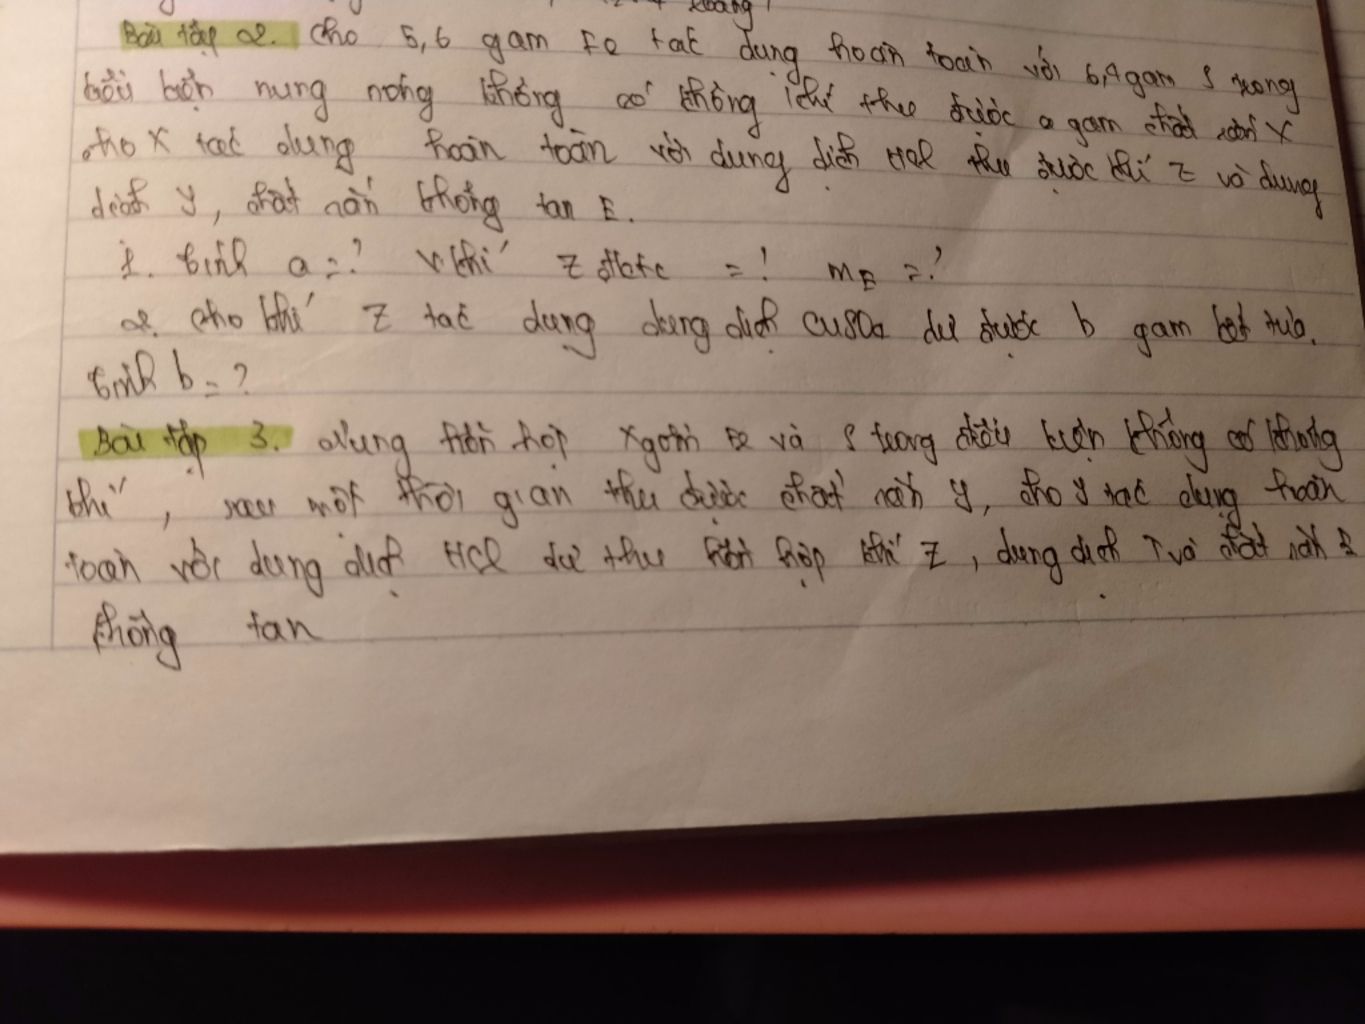 Bài tập 2. Cho 5,6 gam Fe tác dụng hoàn toàn với 6,4 gam S trong
điều kiện nung nóng không có không khí thu được a gam chất rắn X
cho X tác dụng hoàn toàn với dung dịch HCl thu được khí Z và dung
dịch Y, chất rắn không tan E.
1. tính a = ? V khí Z đktc = ? mE = ?
2. cho khí Z tác dụng dung dịch CuSO4 dư được b gam kết tủa.
tính b = ?
Bài tập 3. Nung hỗn hợp X gồm Fe và S trong điều kiện không có không
khí, sau một thời gian thu được chất rắn Y, cho Y tác dụng hoàn
toàn với dung dịch HCl dư thu hỗn hợp khí Z, dung dịch T và chất rắn
không tan